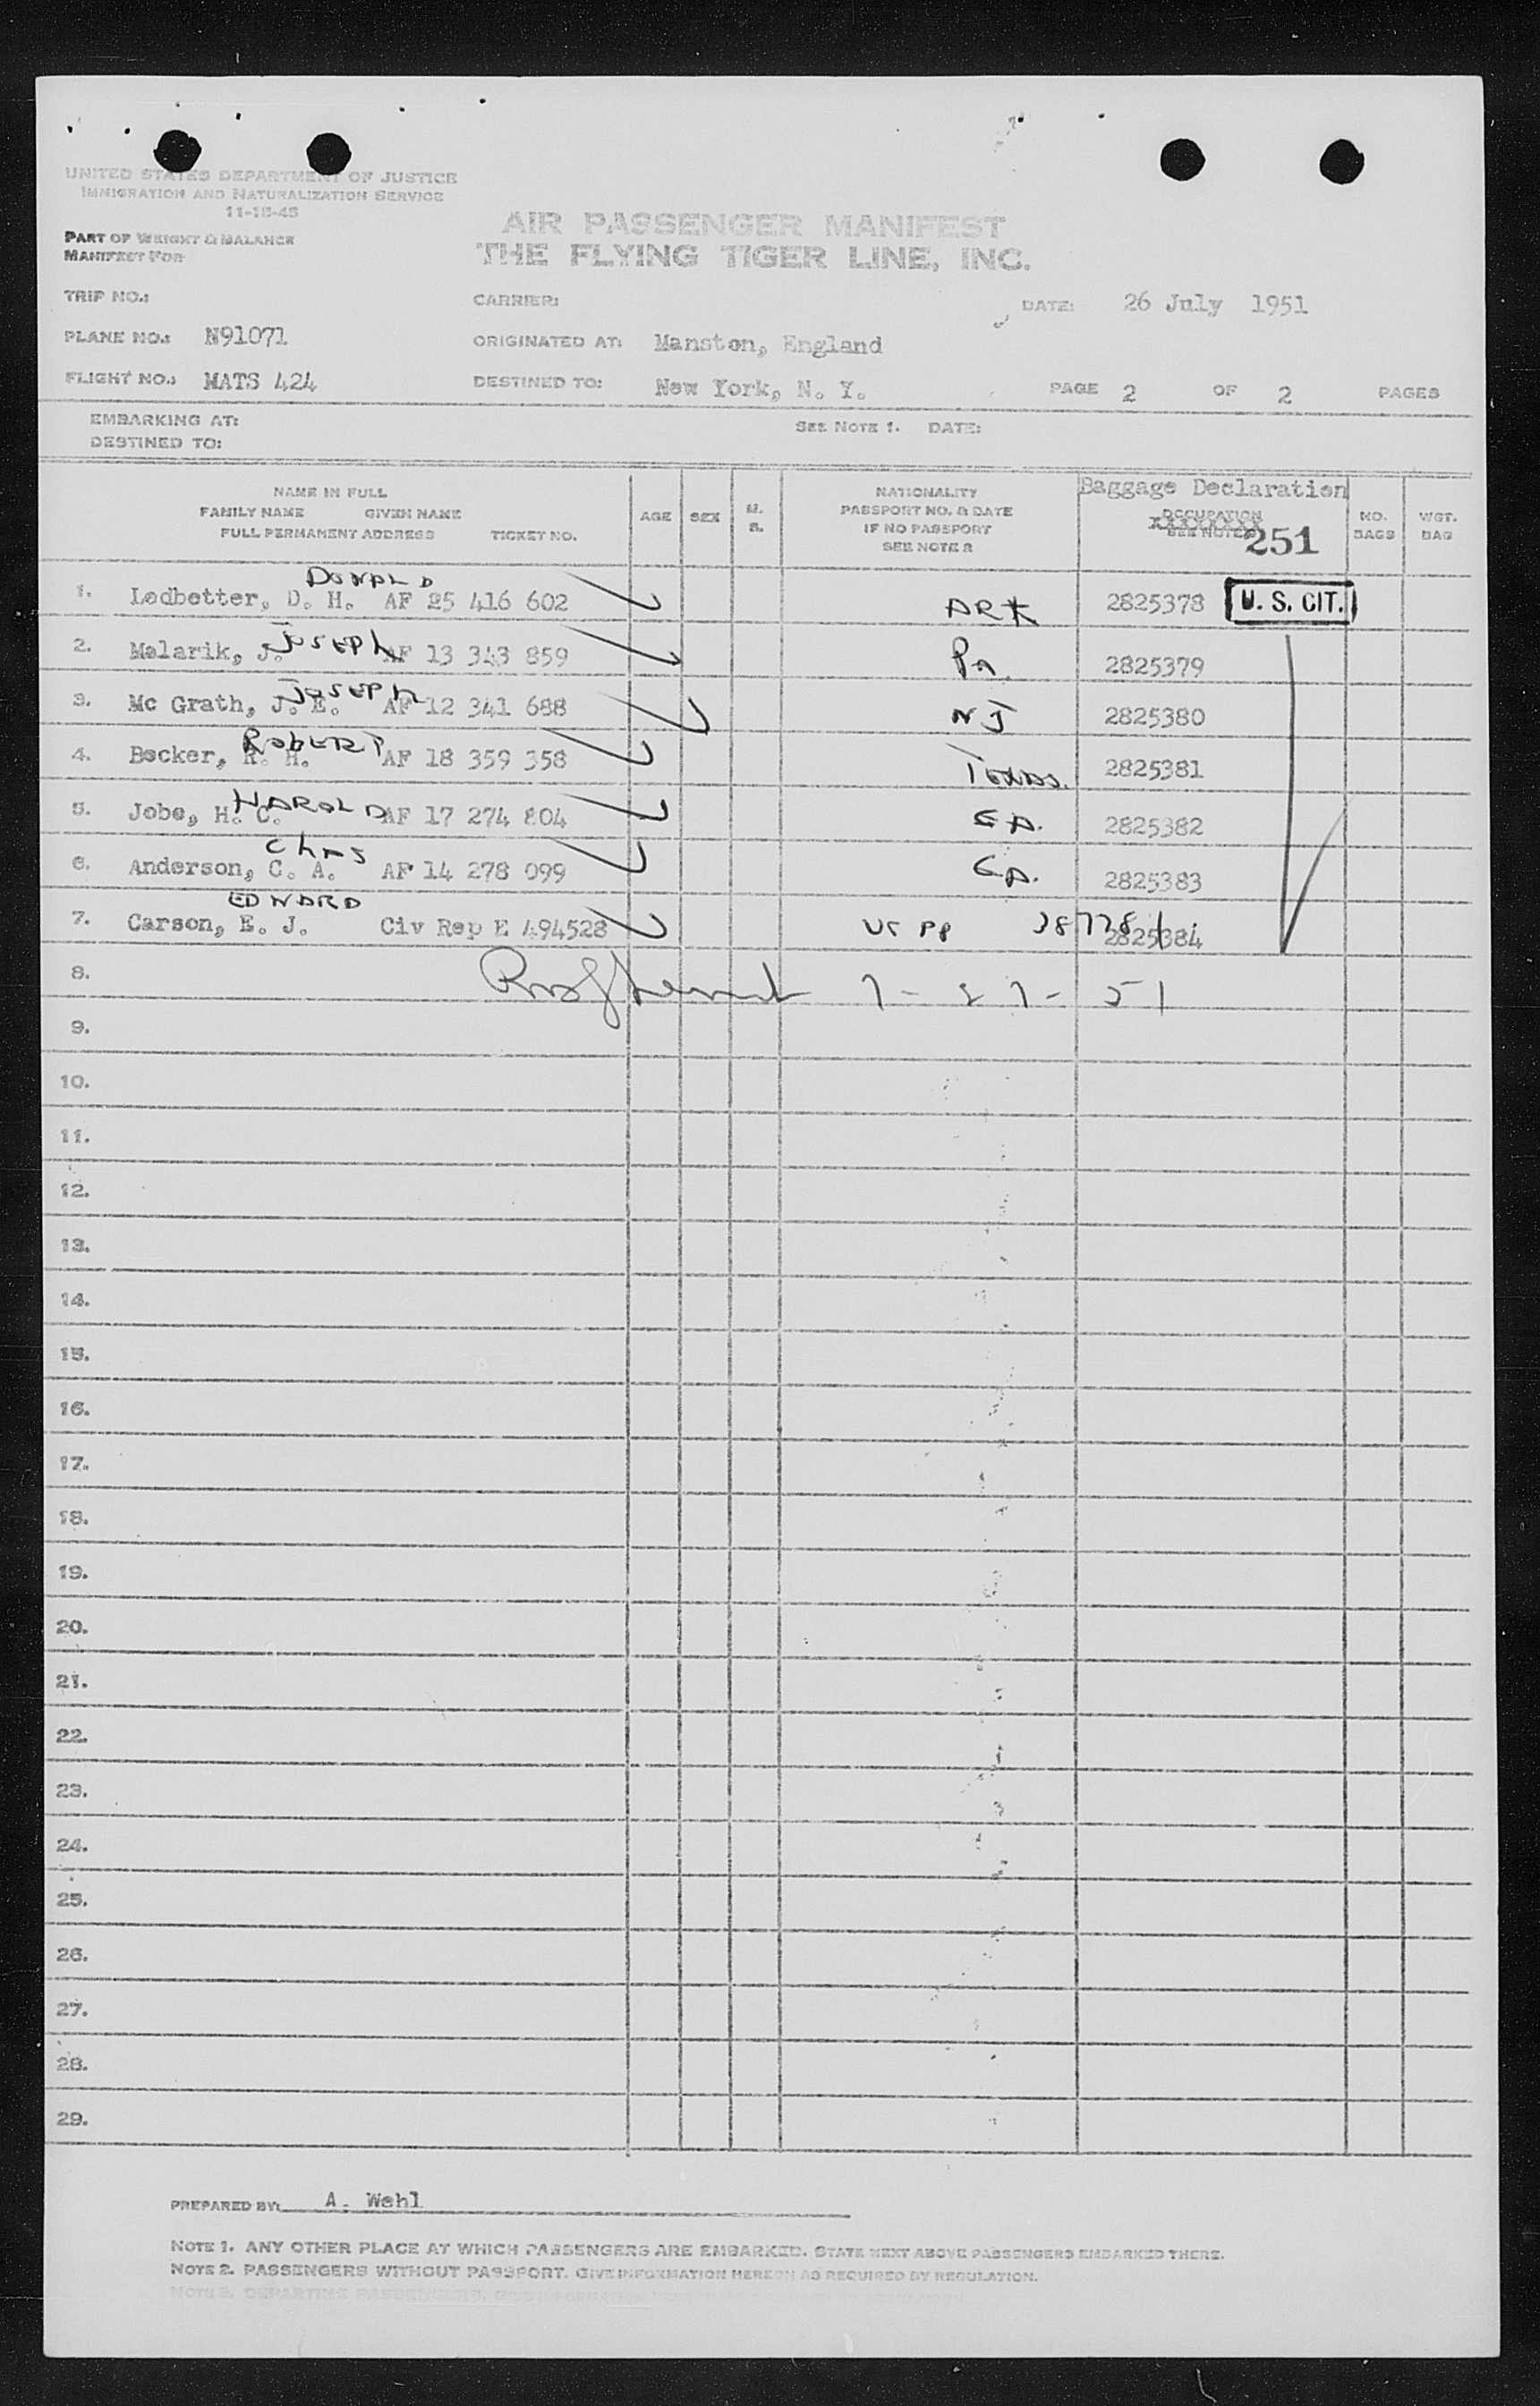 UNITED STATES DEPARTMENT OF JUSTICE
IMMIGRATION AND NATURALIZATION SERVICE
11-15-45
PART OF WEIGHT & BALANCE
MANIFEST FOR
AIR PASSENGER MANIFEST
THE FLYING TIGER LINE, INC.
TRIP NO.: CARRIER: DATE: 26 July 1951
PLANE NO.: N91071 ORIGINATED AT: Manston, England
FLIGHT NO.: MATS 424 DESTINED TO: New York, N. Y. PAGE 2 OF 2 PAGES
EMBARKING AT: SEE NOTE 1. DATE:
DESTINED TO:
NAME IN FULL
FAMILY NAME GIVEN NAME
FULL PERMANENT ADDRESS TICKET NO.
AGE SEX M. S.
NATIONALITY
PASSPORT NO. & DATE
IF NO PASSPORT
SEE NOTE 2
Baggage Declaration
OCCUPATION
SEE NOTE
251
NO. BAGS
WGT. BAG
DONALD
1. Ledbetter, D. H. AF 25 416 602 ARK 2825378 U. S. CIT.
JOSEPH
2. Malarik, J. AF 13 343 859 Pa. 2825379
JOSEPH
3. Mc Grath, J. E. AF 12 341 688 NJ 2825380
ROBERT
4. Becker, R. H. AF 18 359 358 Texas. 2825381
HAROLD
5. Jobe, H. C. AF 17 274 804 GA. 2825382
Chas
6. Anderson, C. A. AF 14 278 099 GA. 2825383
EDWARD
7. Carson, E. J. Civ Rep E 494528 US PP 2825384
8. 7-27-51
9.
10.
11.
12.
13.
14.
15.
16.
17.
18.
19.
20.
21.
22.
23.
24.
25.
26.
27.
28.
29.
PREPARED BY: A. Wehl
NOTE 1. ANY OTHER PLACE AT WHICH PASSENGERS ARE EMBARKED. STATE NEXT ABOVE PASSENGERS EMBARKED THERE.
NOTE 2. PASSENGERS WITHOUT PASSPORT. GIVE INFORMATION HEREON AS REQUIRED BY REGULATION.
NOTE 3. DEPARTING PASSENGERS.